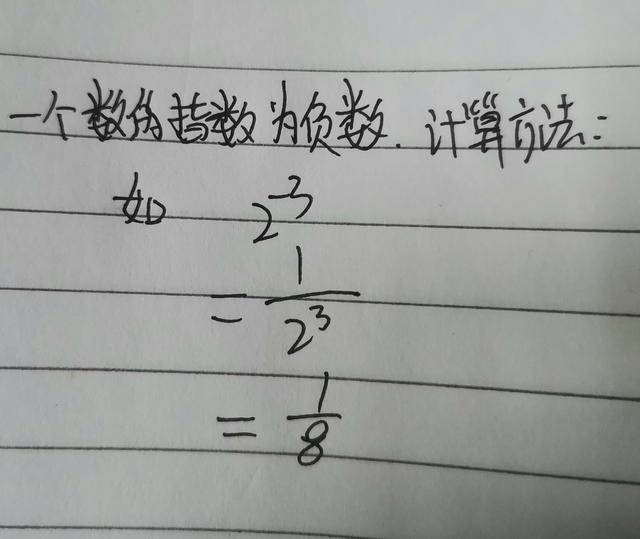 一个数的指数为负数. 计算方法:
如 2⁻³
= 1/2³
= 1/8